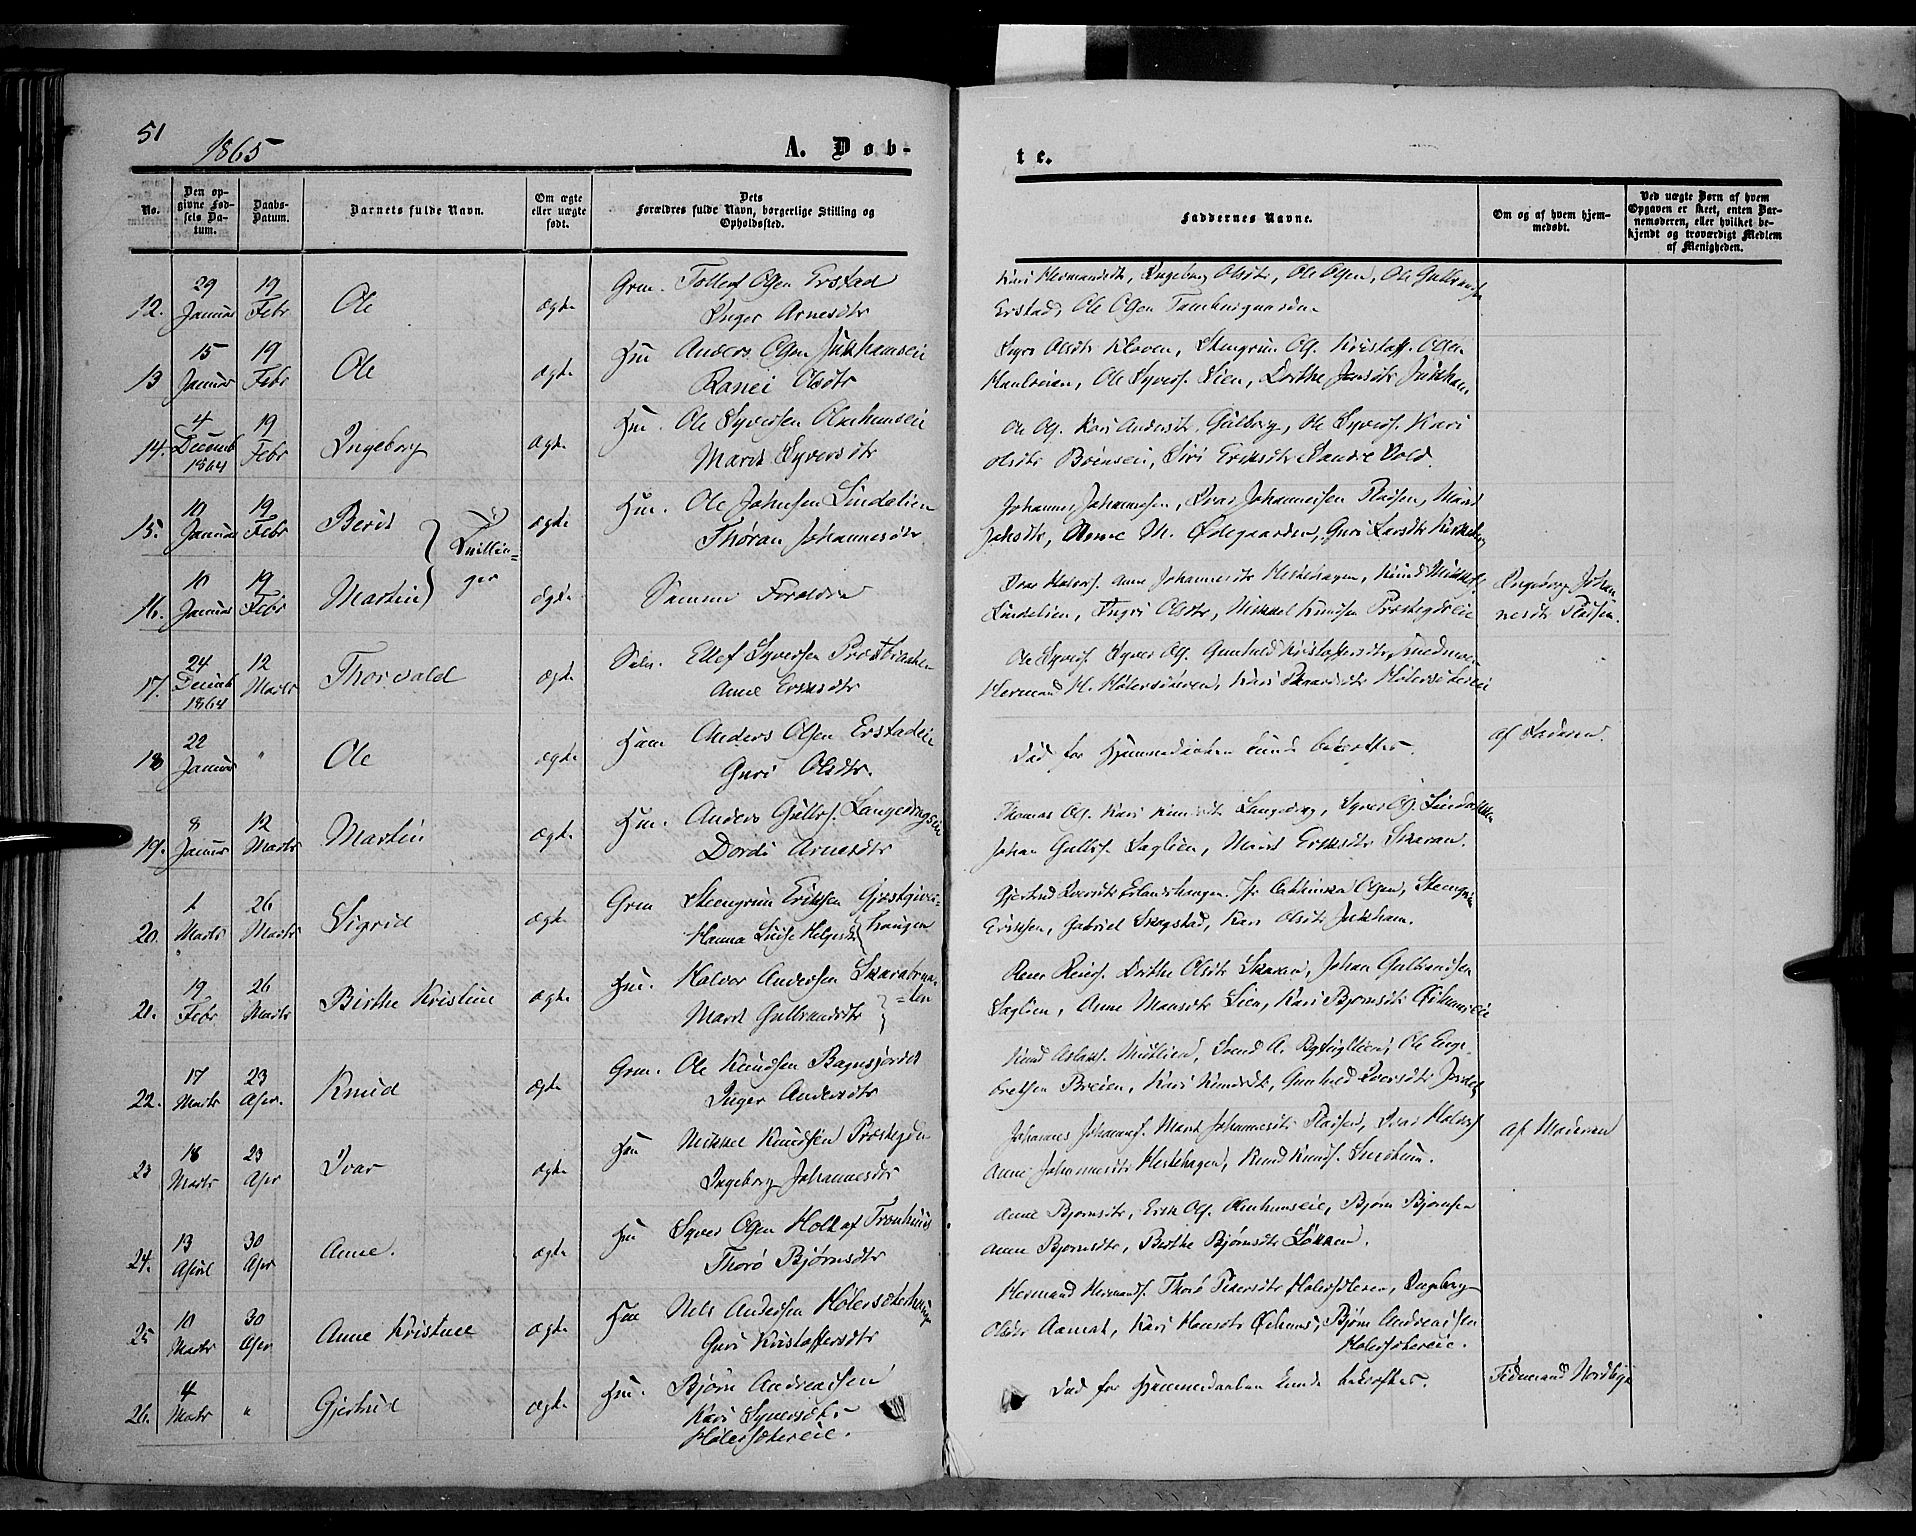 51
1865
A. Døb-
te.
No.
Den op-
givne Fød-
sels Da-
tum.
Daabs-
Datum.
Barnets fulde Navn.
Om ægte
eller uægte
født.
Dets
Forældres fulde Navn, borgerlige Stilling og
Opholdssted.
Faddernes Navne.
Om og af hvem hjem-
medøbt.
Ved uægte Børn af hvem
Opgaven er skeet, enten Bar-
nemoderen, eller hvilket be-
kjendt og troværdigt Medlem
af Menigheden.
12. 29 Januar 19 Febr Ole ægte Grm. Tollef Olsen Erstad
Inger Arnesdtr
Kari Hermandsdtr, Ingeborg Olsdtr, Ole Olsen, Ole Gulbrands
Erstad, Ole Olsen
13 15 Januar 19 Febr Ole ægte Hu Anders Olsen Jukhamseie
Ranei Olsdtr
Olsdtr Kloven, Stengrim Ols. Kristoff. Olsen
Ole Syvers. Lien, Dorthe Jensdtr Jukham
14. 4 Decemb 1864 19 Febr Ingeborg ægte Hu. Ole Syversen Olmhuuseie
Marit Syversdtr
Ole Ols. Kari Andersdtr. Gulberg, Ole Syvers. Kari
Olsdtr Siri Eriksdtr Sandre Vold.
15. 10 Januar 19 Febr Berit Tvillin-
ger
ægte Hu. Ole Johnsen Lindelien
Thoran Johannesdtr
Johannes Johannesen, Ivar Johannesen Pladsen, Marit
Johsdtr, Arne M. Ødegaarden, Guri Larsdtr
16. 10 Januar 19 Febr Martin ægte Samme Forældre
Ivar Halvors. Anne Johannesdtr Hestehagen, Knud Mikkels.
Lindelien, Ingri Olsdtr, Mikkel Knudsen Præstegdseie
Ingeborg Johan-
nesdtr Pladsen.
17. 24 Decemb 1864 12 Marts Thorvald ægte Selv. Ellef Syversen Præstbraaten
Anne Eriksdtr
Ole Syvers. Syver Ols. Gunhild Kristoffersdtr
Hermand H. Hølersæteren, Kari Hølersætereie
18 22 Januar " Ole ægte Huu Anders Olsen Erstadeie
Guri Olsdtr.
Død før Hjemmedaaben kunde bekræftes.
af Faderen.
19. 8 Januar 12 Marts Martin ægte Hu. Anders Gulbr. Langedragseie
Dordi Arnesdtr
Thomas Ols. Kari Knudsdtr Langedrag, Syver Ols.
Johan Gulbr. Saglien, Marit Eriksdtr Skaran.
20. 1 Marts 26 Marts Sigrid ægte Grm Steengrim Eriksen Gjæstgiver-
Hanna Luise Helgesdtr Haugen
Gjertrud Iversdtr Erlandshaugen. Jfr Cathinka Olsen, Stengrim
Eriksen, Gabriel Skagstad, Kari Olsdtr Jukham.
21. 19 Febr 26 Marts Birthe Kristine ægte Hu. Halvor Andersen Skarabraa-
=ten
Marit Gulbrandsdtr
Dorthe Olsdtr Skaran, Johan Gulbrandsen
Saglien, Anne Monsdtr Lien, Kari Bjørnsdtr
22. 17 Marts 23 Apr. Knud ægte Grm. Ole Knudsen Bagnsjordet
Inger Andersdtr
Knud Aslaks. Midlien, Svend A. Ole Enge-
bretsen Breien, Kari Knudsdtr, Gunhild Iversdtr Jordet
23 18 Marts 23 Apr Ivar ægte Hu Mikkel Knudsen Præstegdn
Ingeborg Johannesdtr
Johannes Johannes. Marit Johannesdtr Pladsen, Ivar Halvors
Anne Johannesdtr Hestehagen, Knud Knuds.
af Moderen
24. 13 April 30 Apr Anne. ægte Hu Syver Olsen Holt af Tronhuus
Thorø Bjørnsdtr
Anne Bjørnsdtr, Erik Ols. Olmhuuseie, Bjørn Bjørnsen
Anne Bjørnsdtr, Birthe Bjørnsdtr Løkken.
25 10 Marts 30 Apr Anne Kristine ægte Hu Nils Andersen Hølersæterhaug
Guri Kristoffersdtr
Hermand Hermands. Thorø Pedersdtr Hølersæteren, Ingeborg
Olsdtr Aamot, Kari Hansdtr Bjørn Andreassen
Hølersætereie.
26. 4 Marts " Gjertrud ægte Hu. Bjørn Andreassen
Kari Syversdtr
Hølersætereie.
Død før Hjemmedaaben kunde bekræftes.
Tidemand Nordbye